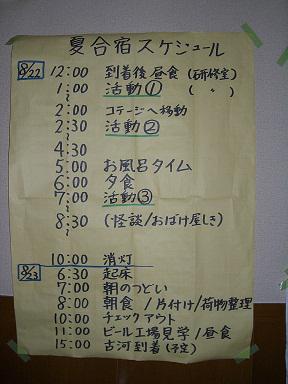 夏合宿スケジュール
8/22 12:00 到着後 昼食 (研修室)
1:00 活動① ( 〃 )
~
2:00 コテージへ移動
2:30 活動②
~
4:30
5:00 お風呂タイム
6:00 夕食
7:00 活動③
~
8:30 (怪談/おばけ屋しき)
10:00 消灯
8/23 6:30 起床
7:00 朝のつどい
8:00 朝食 /片付け/荷物整理
10:00 チェックアウト
11:00 ビール工場見学/昼食
15:00 古河到着(予定)